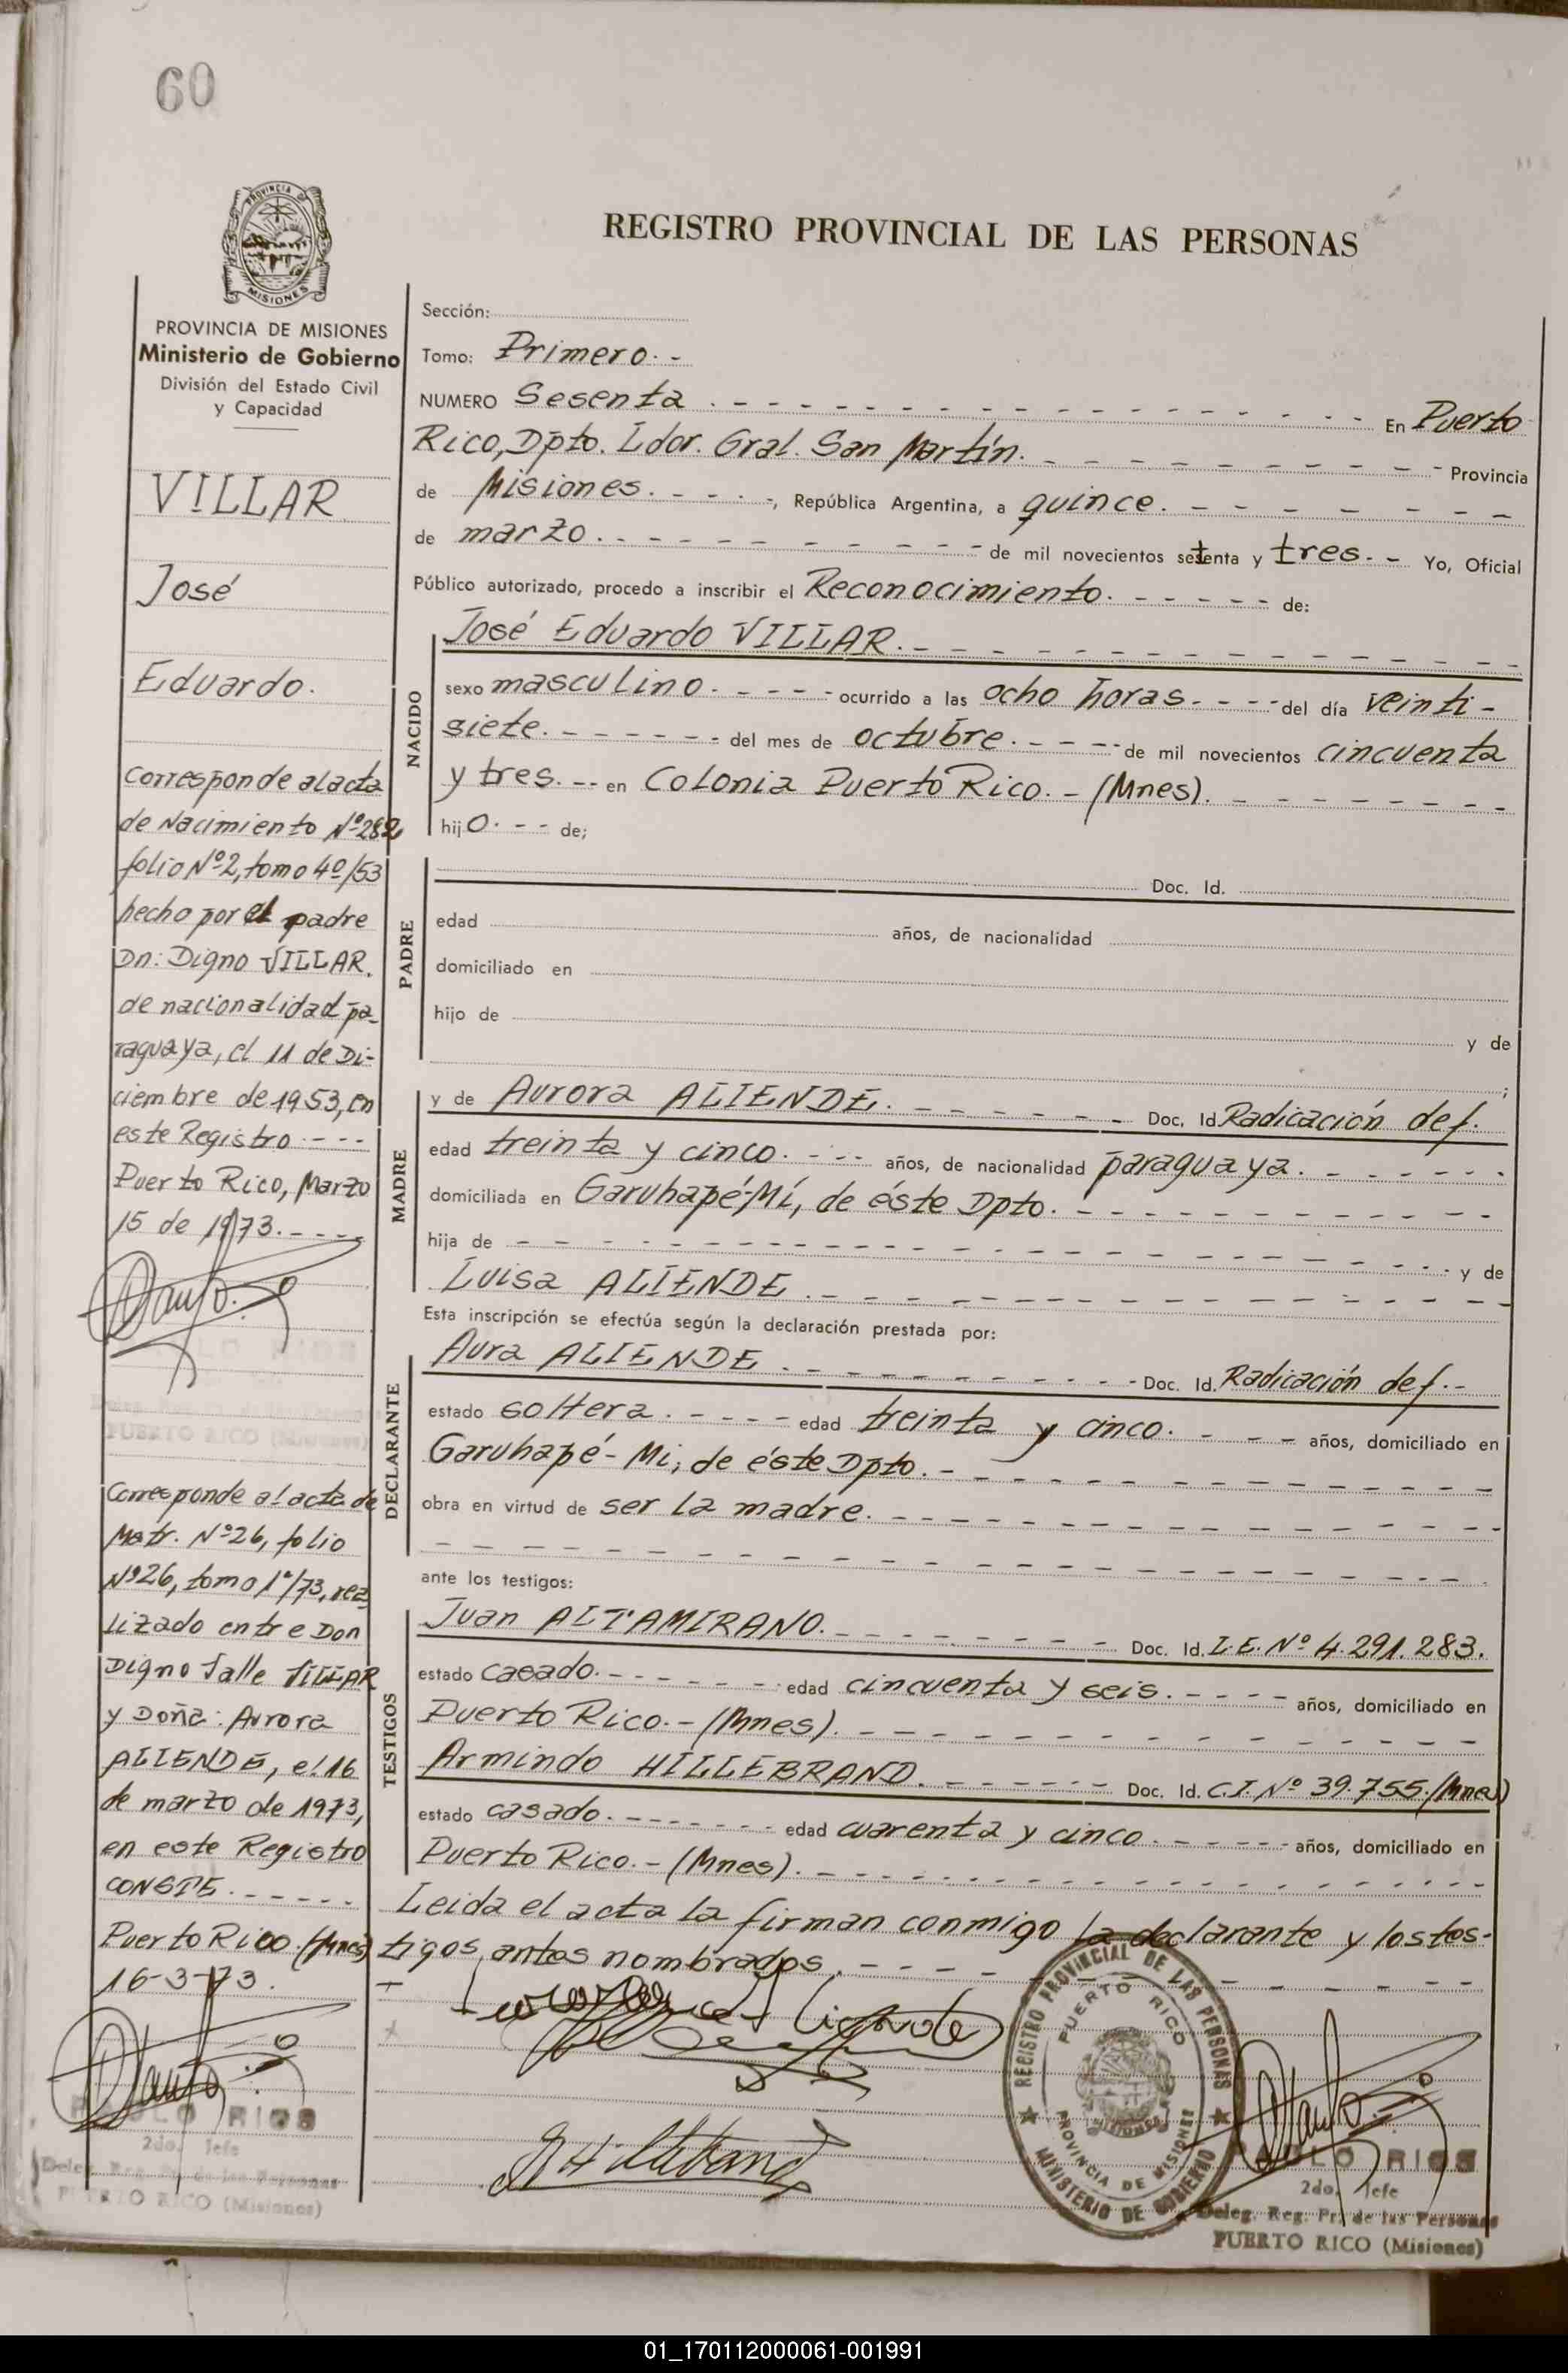 60
PROVINCIA DE
MISIONES
REGISTRO PROVINCIAL DE LAS PERSONAS
PROVINCIA DE MISIONES
Ministerio de Gobierno
División del Estado Civil
y Capacidad
VILLAR
José
Eduardo.
corresponde al acta
de Nacimiento Nº 282
folio Nº 2, tomo 4º/53
hecho por el padre
Dn: Digno VILLAR.
de nacionalidad pa-
raguaya, el 11 de Di-
ciembre de 1953, en
este Registro. - - -
Puerto Rico, Marzo
15 de 1973. - - - -
PUERTO RICO (Misiones)
Corresponde al acta de
Matr. Nº 26, folio
Nº 26, tomo 1º/73, rea
Lizado entre Don
Digno Valle VILLAR
y Doña: Aurora
ALIENDE, el 16
de marzo de 1973,
en este Registro
CONSTE. - - - - -
Puerto Rico. (Mnes)
16-3-73.
PABLO RIOS
2do. Jefe
Deleg. Reg. Pr. de las Personas
PUERTO RICO (Misiones)
Sección:
Tomo: Primero. -
NUMERO Sesenta . - - - - En Puerto
Rico, Dpto. Ldor. Gral. San Martín. - - - - Provincia
de Misiones. - - - -, República Argentina, a quince. - - - -
de marzo. - - - - de mil novecientos setenta y tres. - Yo, Oficial
Público autorizado, procedo a inscribir el Reconocimiento. - - - - de:
NACIDO
José Eduardo VILLAR. - - - -
sexo masculino. - - - - ocurrido a las ocho horas. - - - del día veinti-
siete. - - - - del mes de octubre. - - - - de mil novecientos cincuenta
y tres. - - en Colonia Puerto Rico. - (Mnes). - - - -
hijo. - - de;
PADRE
Doc. Id.
edad años, de nacionalidad
domiciliado en
hijo de y de
;
MADRE
y de Aurora ALIENDE. - - - - Doc. Id. Radicación def.
edad treinta y cinco. - - - años, de nacionalidad paraguaya. - - - -
domiciliada en Garuhapé-Mí, de éste Dpto. - - - -
hija de - - - - y de
Luisa ALIENDE. - - - -
Esta inscripción se efectúa según la declaración prestada por:
DECLARANTE
Aura ALIENDE. - - - - Doc. Id. Radicación def. -
estado soltera. - - - - edad treinta y cinco. - - - años, domiciliado en
Garuhapé- Mi, de éste Dpto. - - - -
obra en virtud de ser la madre. - - - -
ante los testigos:
TESTIGOS
Juan ALTAMIRANO. - - - - Doc. Id. L.E. Nº 4.291.283.
estado casado. - - - - edad cincuenta y seis. - - - - años, domiciliado en
Puerto Rico. - (Mnes). - - - -
Armindo HILLEBRAND. - - - - Doc. Id. C.I. Nº 39.755. (Mnes)
estado casado. - - - - edad cuarenta y cinco. - - - - años, domiciliado en
Puerto Rico. - (Mnes). - - - -
Leida el acta la firman conmigo la declarante y los tes-
tigos antes nombrados. - - - -
REGISTRO PROVINCIAL DE LAS PERSONAS
PUERTO RICO
PROVINCIA DE MISIONES
MINISTERIO DE GOBIERNO
PABLO RIOS
2do. Jefe
Deleg. Reg. Pr. de las Personas
PUERTO RICO (Misiones)
01_170112000061-001991